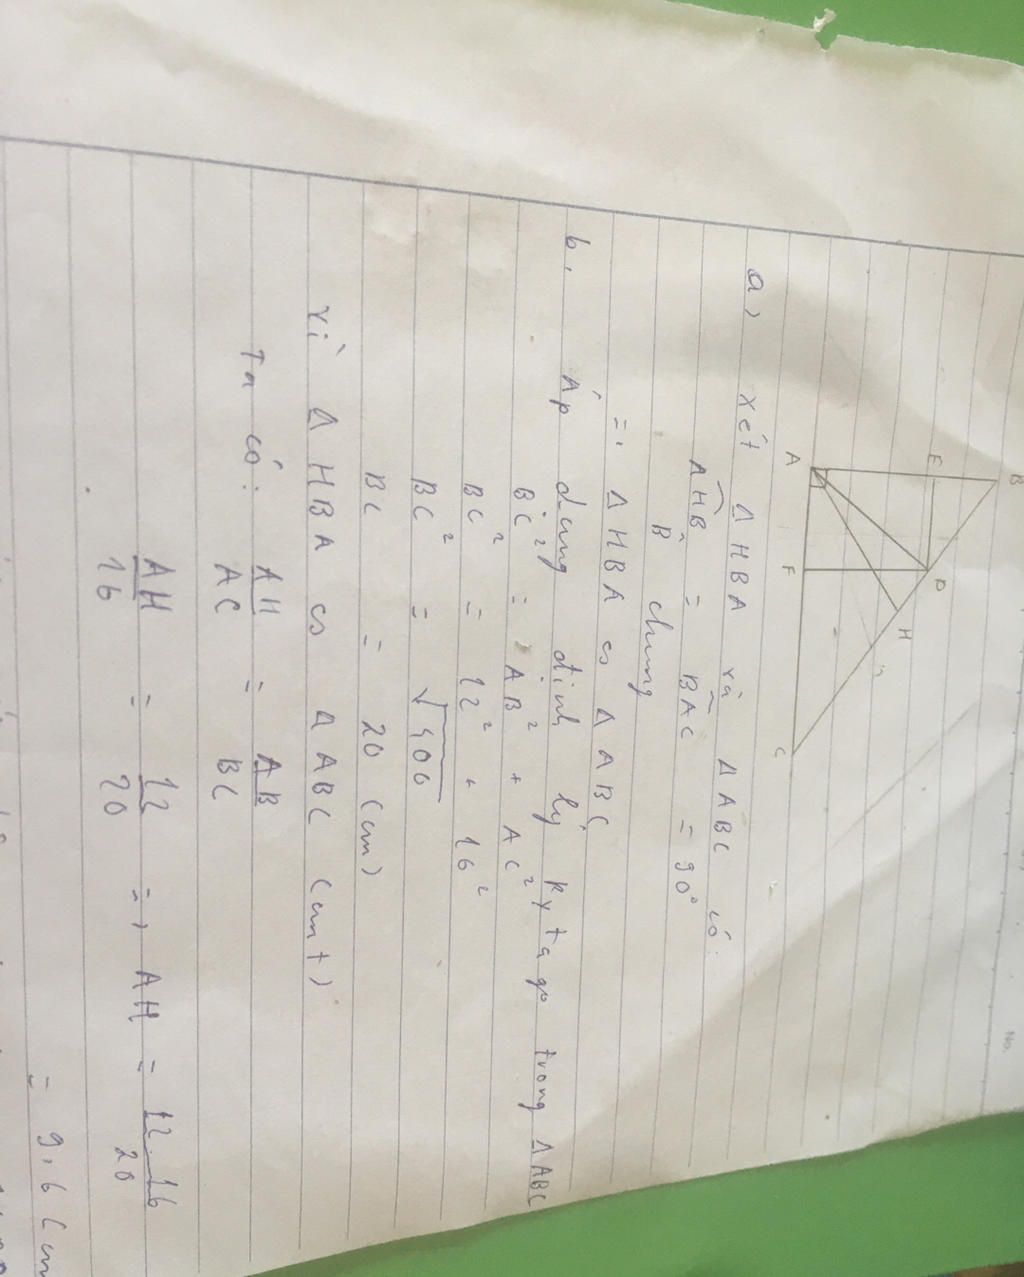 No.
B
E
D
H
A
F
C
a) xét Δ HBA và Δ ABC có:
AHB = BAC = 90°
B chung
=> Δ HBA ∽ Δ ABC
b, Áp dụng định lý Pytago trong Δ ABC
BC² = AB² + AC²
BC² = 12² + 16²
BC² = √400
BC = 20 (cm)
Vì Δ HBA ∽ Δ ABC (cmt)
Ta có: AH/AC = AB/BC
AH/16 = 12/20 => AH = 12.16/20
= 9,6 (cm